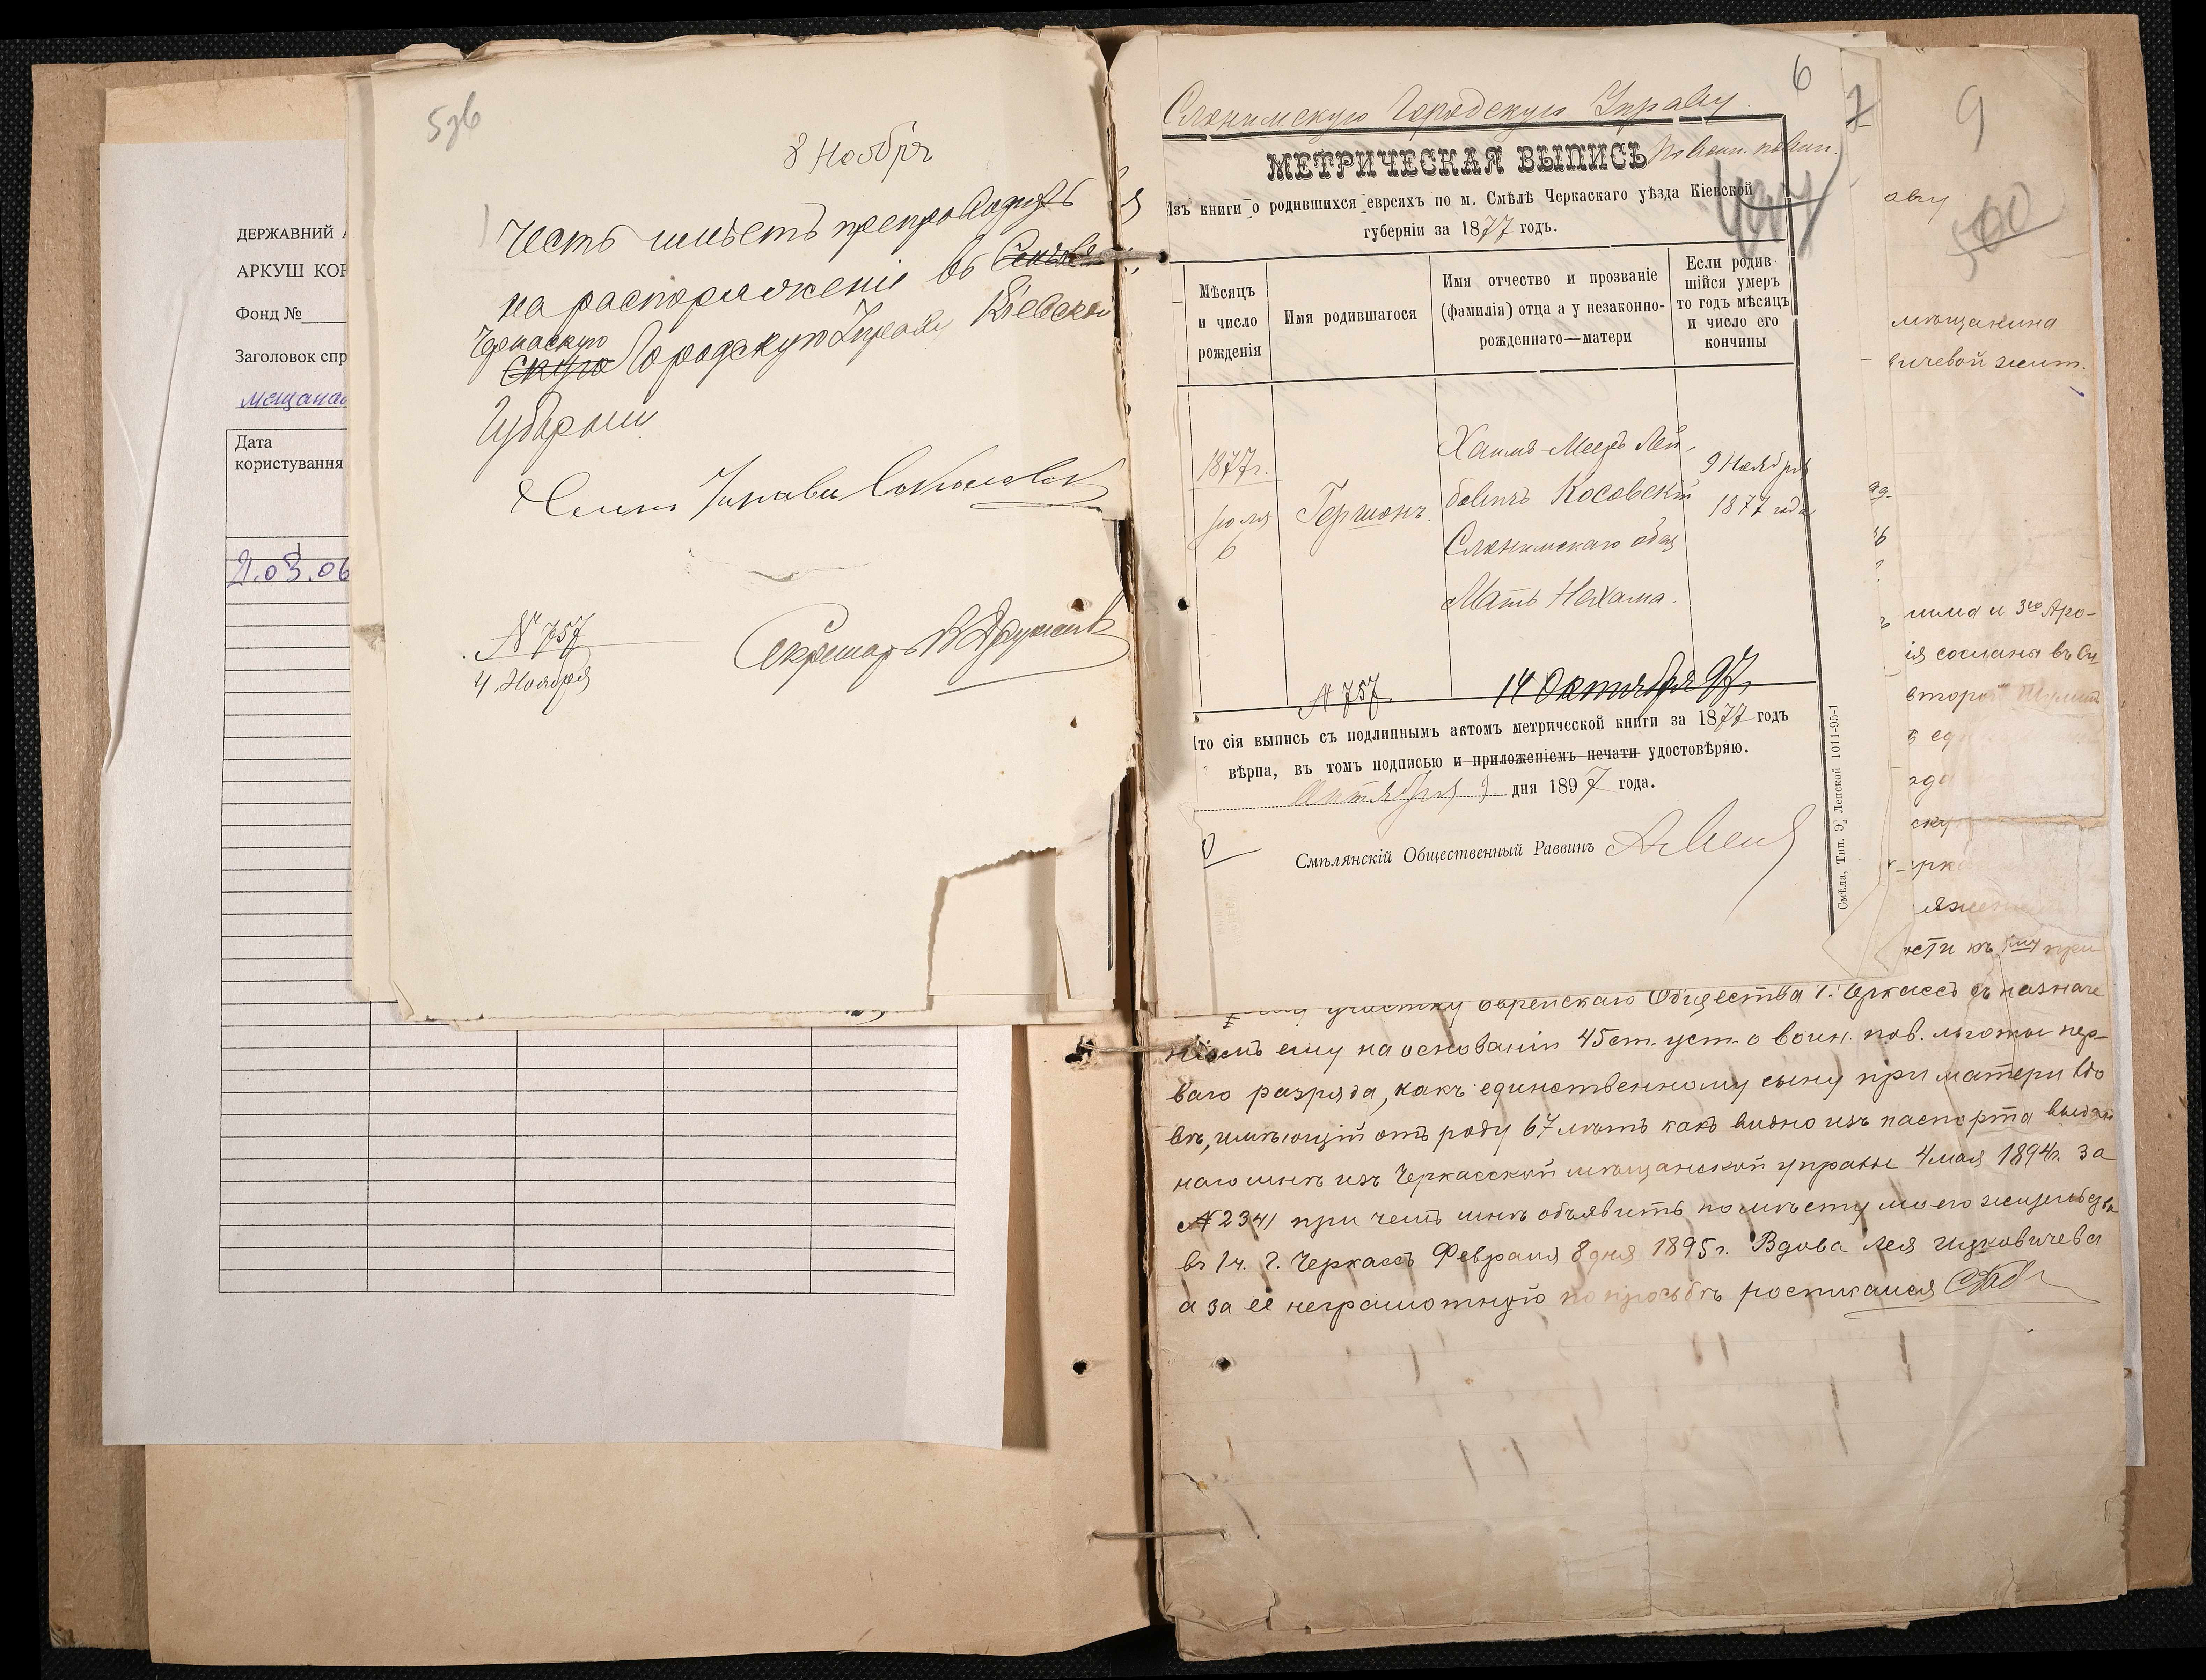 ДЕРЖАВНИЙ
АРКУШ КОР
Фонд №
Заголовок спр
мещанан
Дата
користування
21.03.06
5 зб
8 Ноября
Честь имѣетъ препроводить
на распоряженіе въ
Черкаскую Городскую Управу Кіевской
Губерніи
Членъ Управы
№ 757
4 Ноября
Секретарь
6
Слонимскую Городскую Управу
МЕТРИЧЕСКАЯ ВЫПИСЬ
По воин. повин.
447
Изъ книги о родившихся евреяхъ по м. Смѣлѣ Черкаскаго уѣзда Кіевской
губерніи за 1877 годъ.
Мѣсяцъ
и число
рожденія
Имя родившагося
Имя отчество и прозваніе
(фамилія) отца а у незаконно-
рожденнаго—матери
Если родив-
шійся умеръ
то годъ мѣсяцъ
и число его
кончины
1877 г.
Іюля
6
Гершонъ.
Хаимъ-Мееръ Лей-
бовичъ Косовскій
Слонимскаго общ
Мать Нехама.
9 Ноября
1877 года
№ 757
14 Октября 97 г.
Что сія выпись съ подлиннымъ актомъ метрической книги за 1877 годъ
вѣрна, въ томъ подписью и приложеніемъ печати удостовѣряю.
Октября 9 дня 1897 года.
Смѣлянскій Общественный Раввинъ
Смѣла, Тип. Э. Лепской 1011-95-1
7
9
500
аву
мѣщанина
вичевой жит.
шма и 3го Аро-
ія сослана въ Си
второй
ости къ 1му при
участку Еврейскаго Общества г. Черкассъ съ назначе
ніемъ ему на основаніи 45 ст. уст. о воин. пов. льготы пер-
ваго разряда, какъ единственному сыну при матери вдо
вѣ, имѣющій отъ роду 67 лѣтъ какъ видно изъ паспорта выдан
наго мнѣ изъ Черкасской мѣщанской управы 4 мая 1894 г. за
№ 2341 при чемъ мнѣ объявить по мѣсту моего жительства
въ 1 ч. г. Черкассъ Февраля 8 дня 1895 г. Вдова Лея Ицковичева
а за её неграмотную по просьбѣ росписался